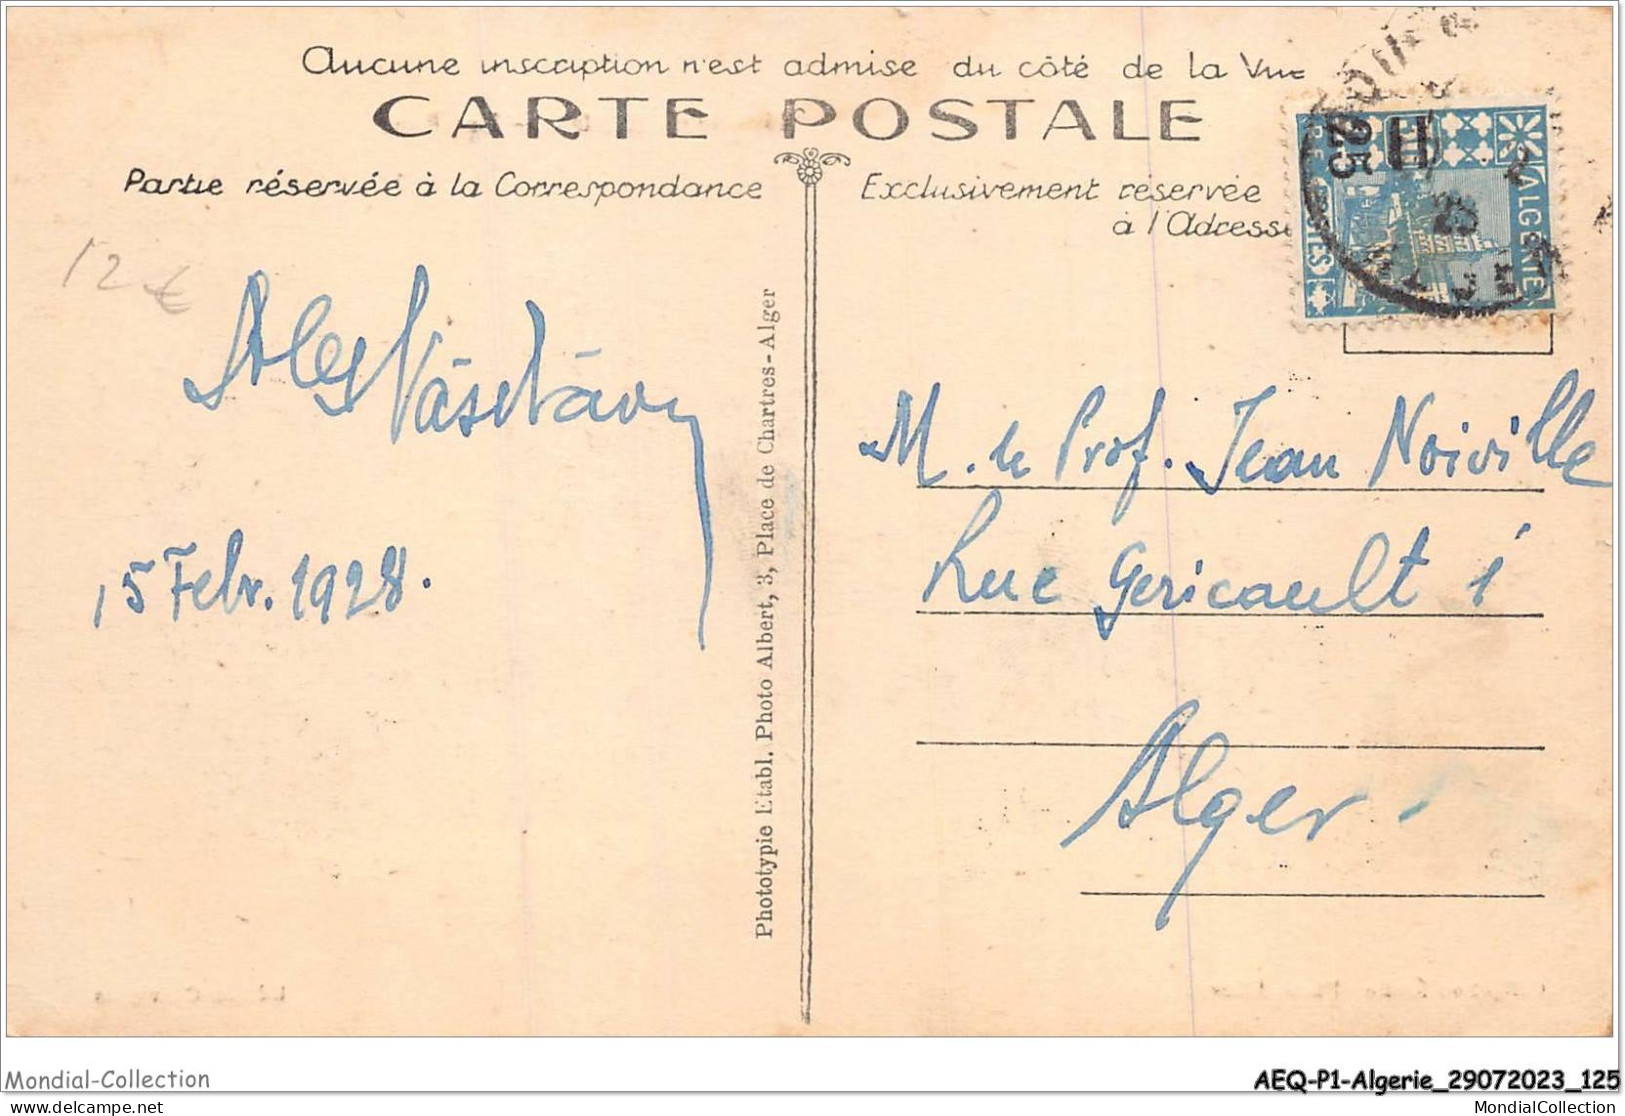 Aucune inscription n'est admise du côté de la Vue
CARTE POSTALE
Partie réservée à la Correspondance
Exclusivement réservée
à l'Adresse
25
ALGÉRIE
POSTES
12 €
15 Febr. 1928.
Phototypie Etabl. Photo Albert, 3, Place de Chartres-Alger
M. le Prof. Jean Noiville
Rue Gericault 1
Alger
Mondial-Collection
AEQ-P1-Algerie_29072023_125
delcampe.net
MondialCollection